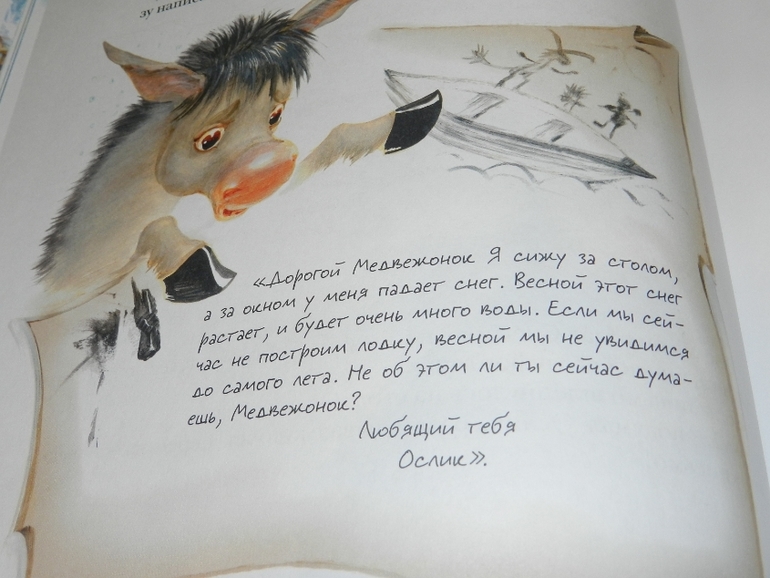 зу напис
«Дорогой Медвежонок Я сижу за столом,
а за окном у меня падает снег. Весной этот снег
растает, и будет очень много воды. Если мы сей-
час не построим лодку, весной мы не увидимся
до самого лета. Не об этом ли ты сейчас дума-
ешь, Медвежонок?
Любящий тебя
Ослик».